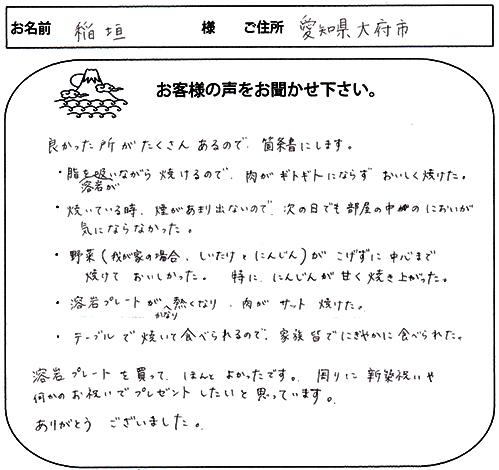 お名前 稲垣 様 ご住所 愛知県大府市
お客様の声をお聞かせ下さい。
良かった所がたくさんあるので、箇条書にします。
・溶岩が脂を吸いながら焼けるので、肉がギトギトにならずおいしく焼けた。
・焼いている時、煙があまり出ないので、次の日でも部屋の中のにおいが
気にならなかった。
・野菜(我が家の場合、しいたけとにんじん)がこげずに中心まで
焼けておいしかった。 特に、にんじんが甘く焼き上がった。
・溶岩プレートがかなり熱くなり、肉がサット焼けた。
・テーブルで焼いて食べられるので、家族皆でにぎやかに食べられた。
溶岩プレートを買って、ほんとよかったです。周りに新築祝いや
何かのお祝いでプレゼントしたいと思っています。
ありがとうございました。